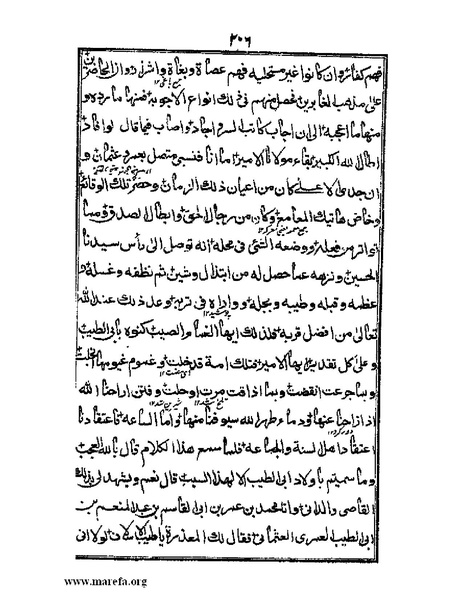 ٢٠٦
فهم كفار وان كانوا غير مستحليه فهم عصاة وبغاة واشرار والحاضرين
على مذهب لغابرين فحصل منهم فى ذلك انواع الاجوبة فمنها مارده و
منها ما اعجبه الى ان اجاب كاتبا لسرد اجاد واصاب فيما قال
اطال الله الكبير بقاء مولانا الامير اما انا فنسبى متصل بعمر وعثمان و
ان جدى الاعلى كان من اعيان ذلك الزمان وحضر تلك الوقائع
وخاض هاتيك المعامع وكان من رجال الحق وابطال الصدق
تواتر من فعله ووضعه الشئ فى محله انه توصل الى رأس سيدنا
الحسين ونزهه عما حصل له من ابتذال وشين ثم نظفه وغسله و
عظمه وقبله وطيبه وبجله وواراه فى تربة وعد ذلك عند الله
تعالى من افضل قربة فلذلك ايها الغمام الصيب كنوه بابى الطيب
وعلى كل تقدير ايها الامير فتلك امة قد خلت وغموم غيومها انجلت
وبما جرعت انقضت وبما اذاقت مرت او حلت وفتن اراحنا الله
اذ ازاحنا عنها ودماء طهر الله سيوفنا منها واما الساعة فاعتقادنا
اعتقاد اهل السنة والجماعة فلما سمع هذا الكلام قال بالله العجب
وما سميتم باولاد ابى الطيب الا لهذا السبب قال نعم ويشهد لى بذلك
القاصى والدانى وانا محمد بن عمر بن ابى القاسم بن عبد المنعم بن
ابى الطيب العمرى العثمانى فقال لك المعذرة يا طيب لولا انى
www.marefa.org